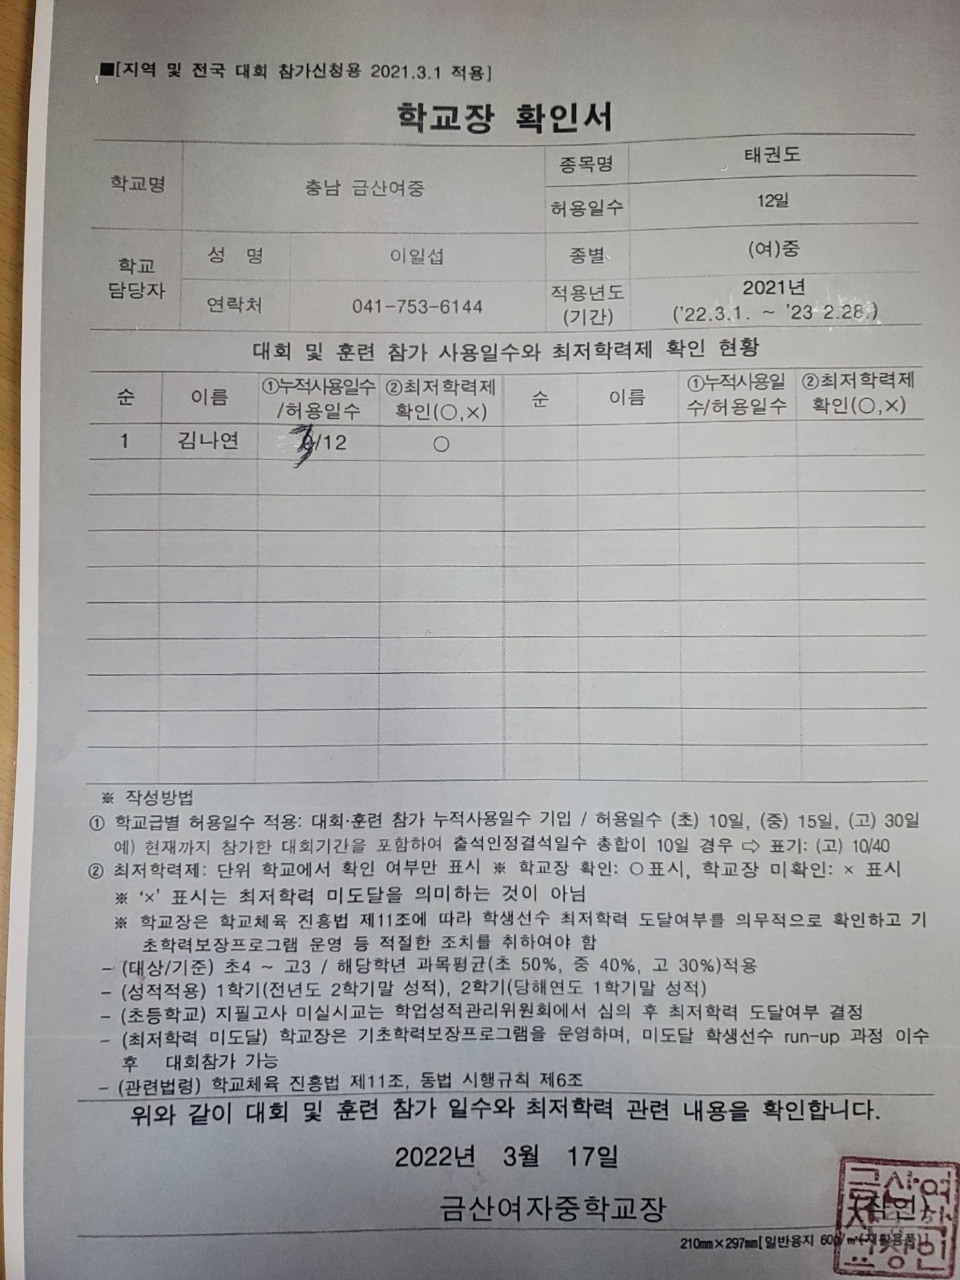 ■[지역 및 전국 대회 참가신청용 2021.3.1 적용]
학교장 확인서
학교명
충남 금산여중
종목명
태권도
허용일수
12일
학교
담당자
성 명
이일섭
종별
(여)중
연락처
041-753-6144
적용년도
(기간)
2021년
('22.3.1. ~ '23 2.28.)
대회 및 훈련 참가 사용일수와 최저학력제 확인 현황
순
이름
①누적사용일수
/허용일수
②최저학력제
확인(○,×)
순
이름
①누적사용일
수/허용일수
②최저학력제
확인(○,×)
1 김나연 /12 ○
※ 작성방법
① 학교급별 허용일수 적용: 대회·훈련 참가 누적사용일수 기입 / 허용일수 (초) 10일, (중) 15일, (고) 30일
예) 현재까지 참가한 대회기간을 포함하여 출석인정결석일수 총합이 10일 경우 ⇨ 표기: (고) 10/40
② 최저학력제: 단위 학교에서 확인 여부만 표시 ※ 학교장 확인: ○표시, 학교장 미확인: × 표시
※ '×' 표시는 최저학력 미도달을 의미하는 것이 아님
※ 학교장은 학교체육 진흥법 제11조에 따라 학생선수 최저학력 도달여부를 의무적으로 확인하고 기
초학력보장프로그램 운영 등 적절한 조치를 취하여야 함
- (대상/기준) 초4 ~ 고3 / 해당학년 과목평균(초 50%, 중 40%, 고 30%)적용
- (성적적용) 1학기(전년도 2학기말 성적), 2학기(당해연도 1학기말 성적)
- (초등학교) 지필고사 미실시교는 학업성적관리위원회에서 심의 후 최저학력 도달여부 결정
- (최저학력 미도달) 학교장은 기초학력보장프로그램을 운영하며, 미도달 학생선수 run-up 과정 이수
후 대회참가 가능
- (관련법령) 학교체육 진흥법 제11조, 동법 시행규칙 제6조
위와 같이 대회 및 훈련 참가 일수와 최저학력 관련 내용을 확인합니다.
2022년 3월 17일
금산여자중학교장
(직인)
210㎜×297㎜[일반용지 60g/㎡(재활용품)]